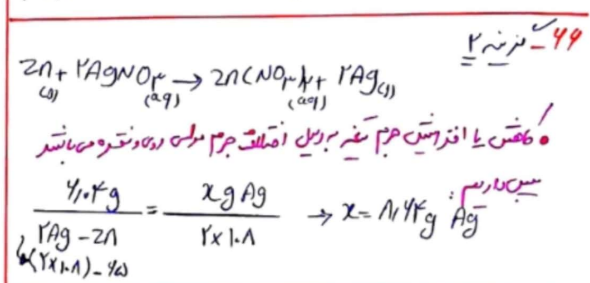 ۶۶- گزینه ۲
Zn(s) + ۲AgNO۳(aq) → Zn(NO۳)۲(aq) + ۲Ag(s)
کاهش یا افزایش جرم تیغه به دلیل اختلاف جرم مولی روی و نقره می باشد
پس داریم:
۶,۰۴g / ۲Ag - Zn = x g Ag / ۲×۱۰۸ → x = ۸,۶۴g Ag
(۲×۱۰۸) - ۶۵